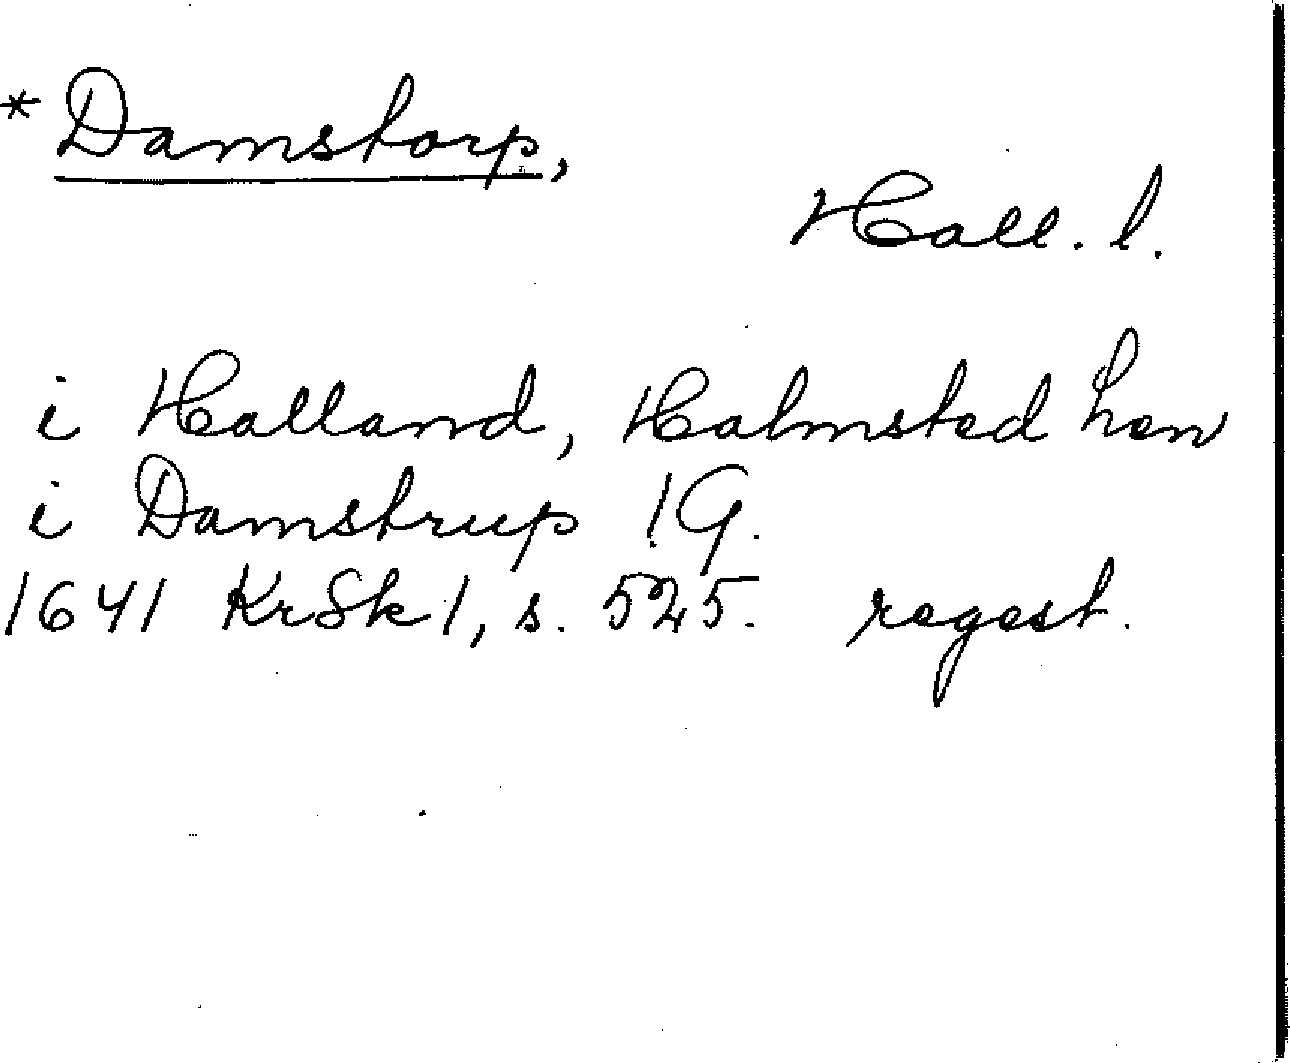 *Damstorp,
Hall. l.
i Halland, Halmsted hen
i Damstrup 1 G.
1641 KrSk 1, s. 525. regest.